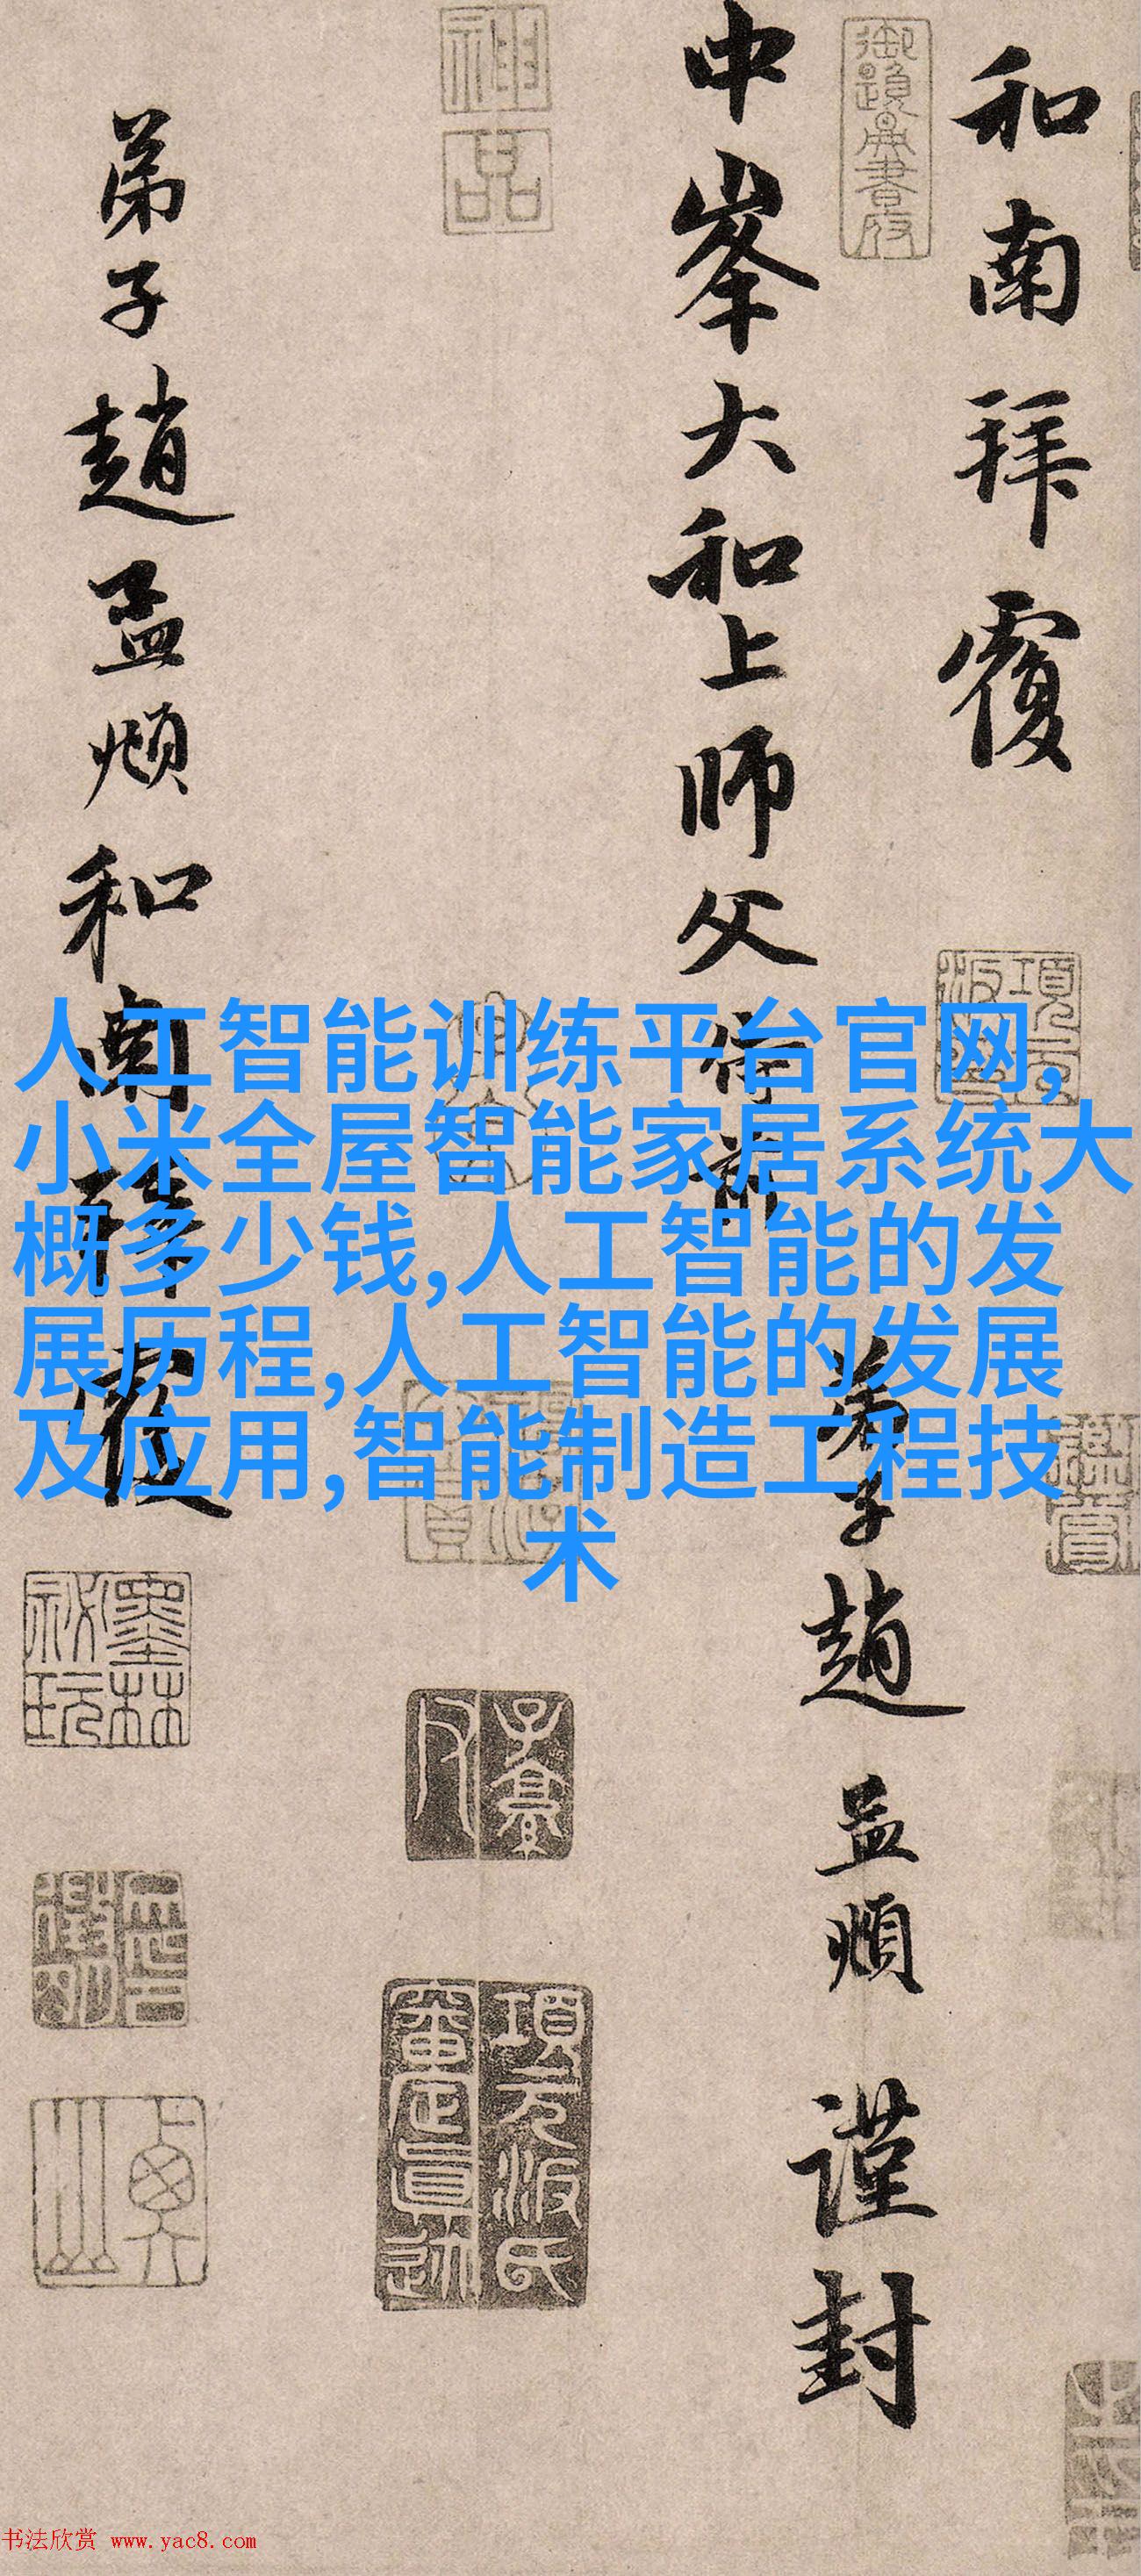 和南拜覆
中峯大和上師父侍前
弟子趙孟頫謹封
弟子趙孟頫和南拜覆
神品
墨林祕玩
項元汴氏審定真迹
人工智能训练平台官网,
小米全屋智能家居系统大
概多少钱,人工智能的发
展历程,人工智能的发展
及应用,智能制造工程技
术
书法欣赏 www.yac8.com